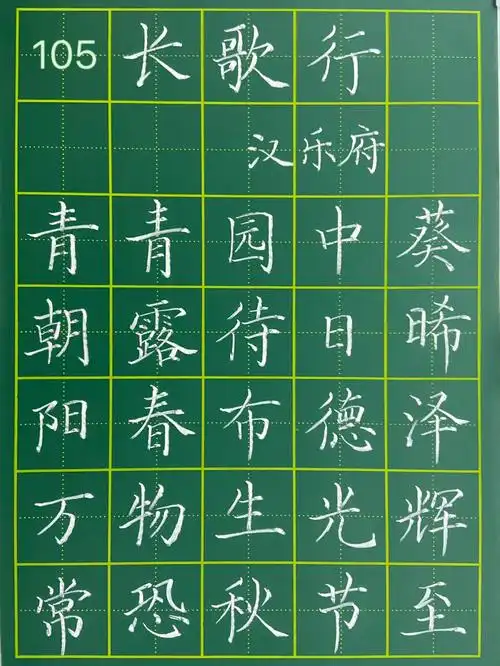 105 长歌行
汉乐府
青青园中葵
朝露待日晞
阳春布德泽
万物生光辉
常恐秋节至